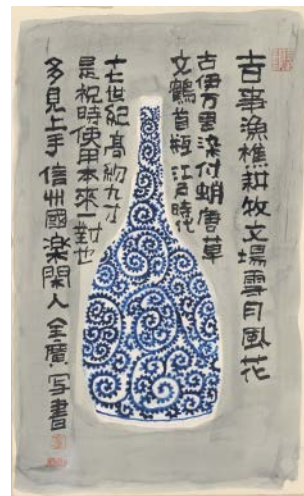 吉事漁樵耕牧文場雪月風花
古伊万里染付蛸唐草
文鶴首瓶 江戸時代
十七世紀高約九寸
是祝時使用本来一對也
多見上手 信州國楽閑人全廣写書